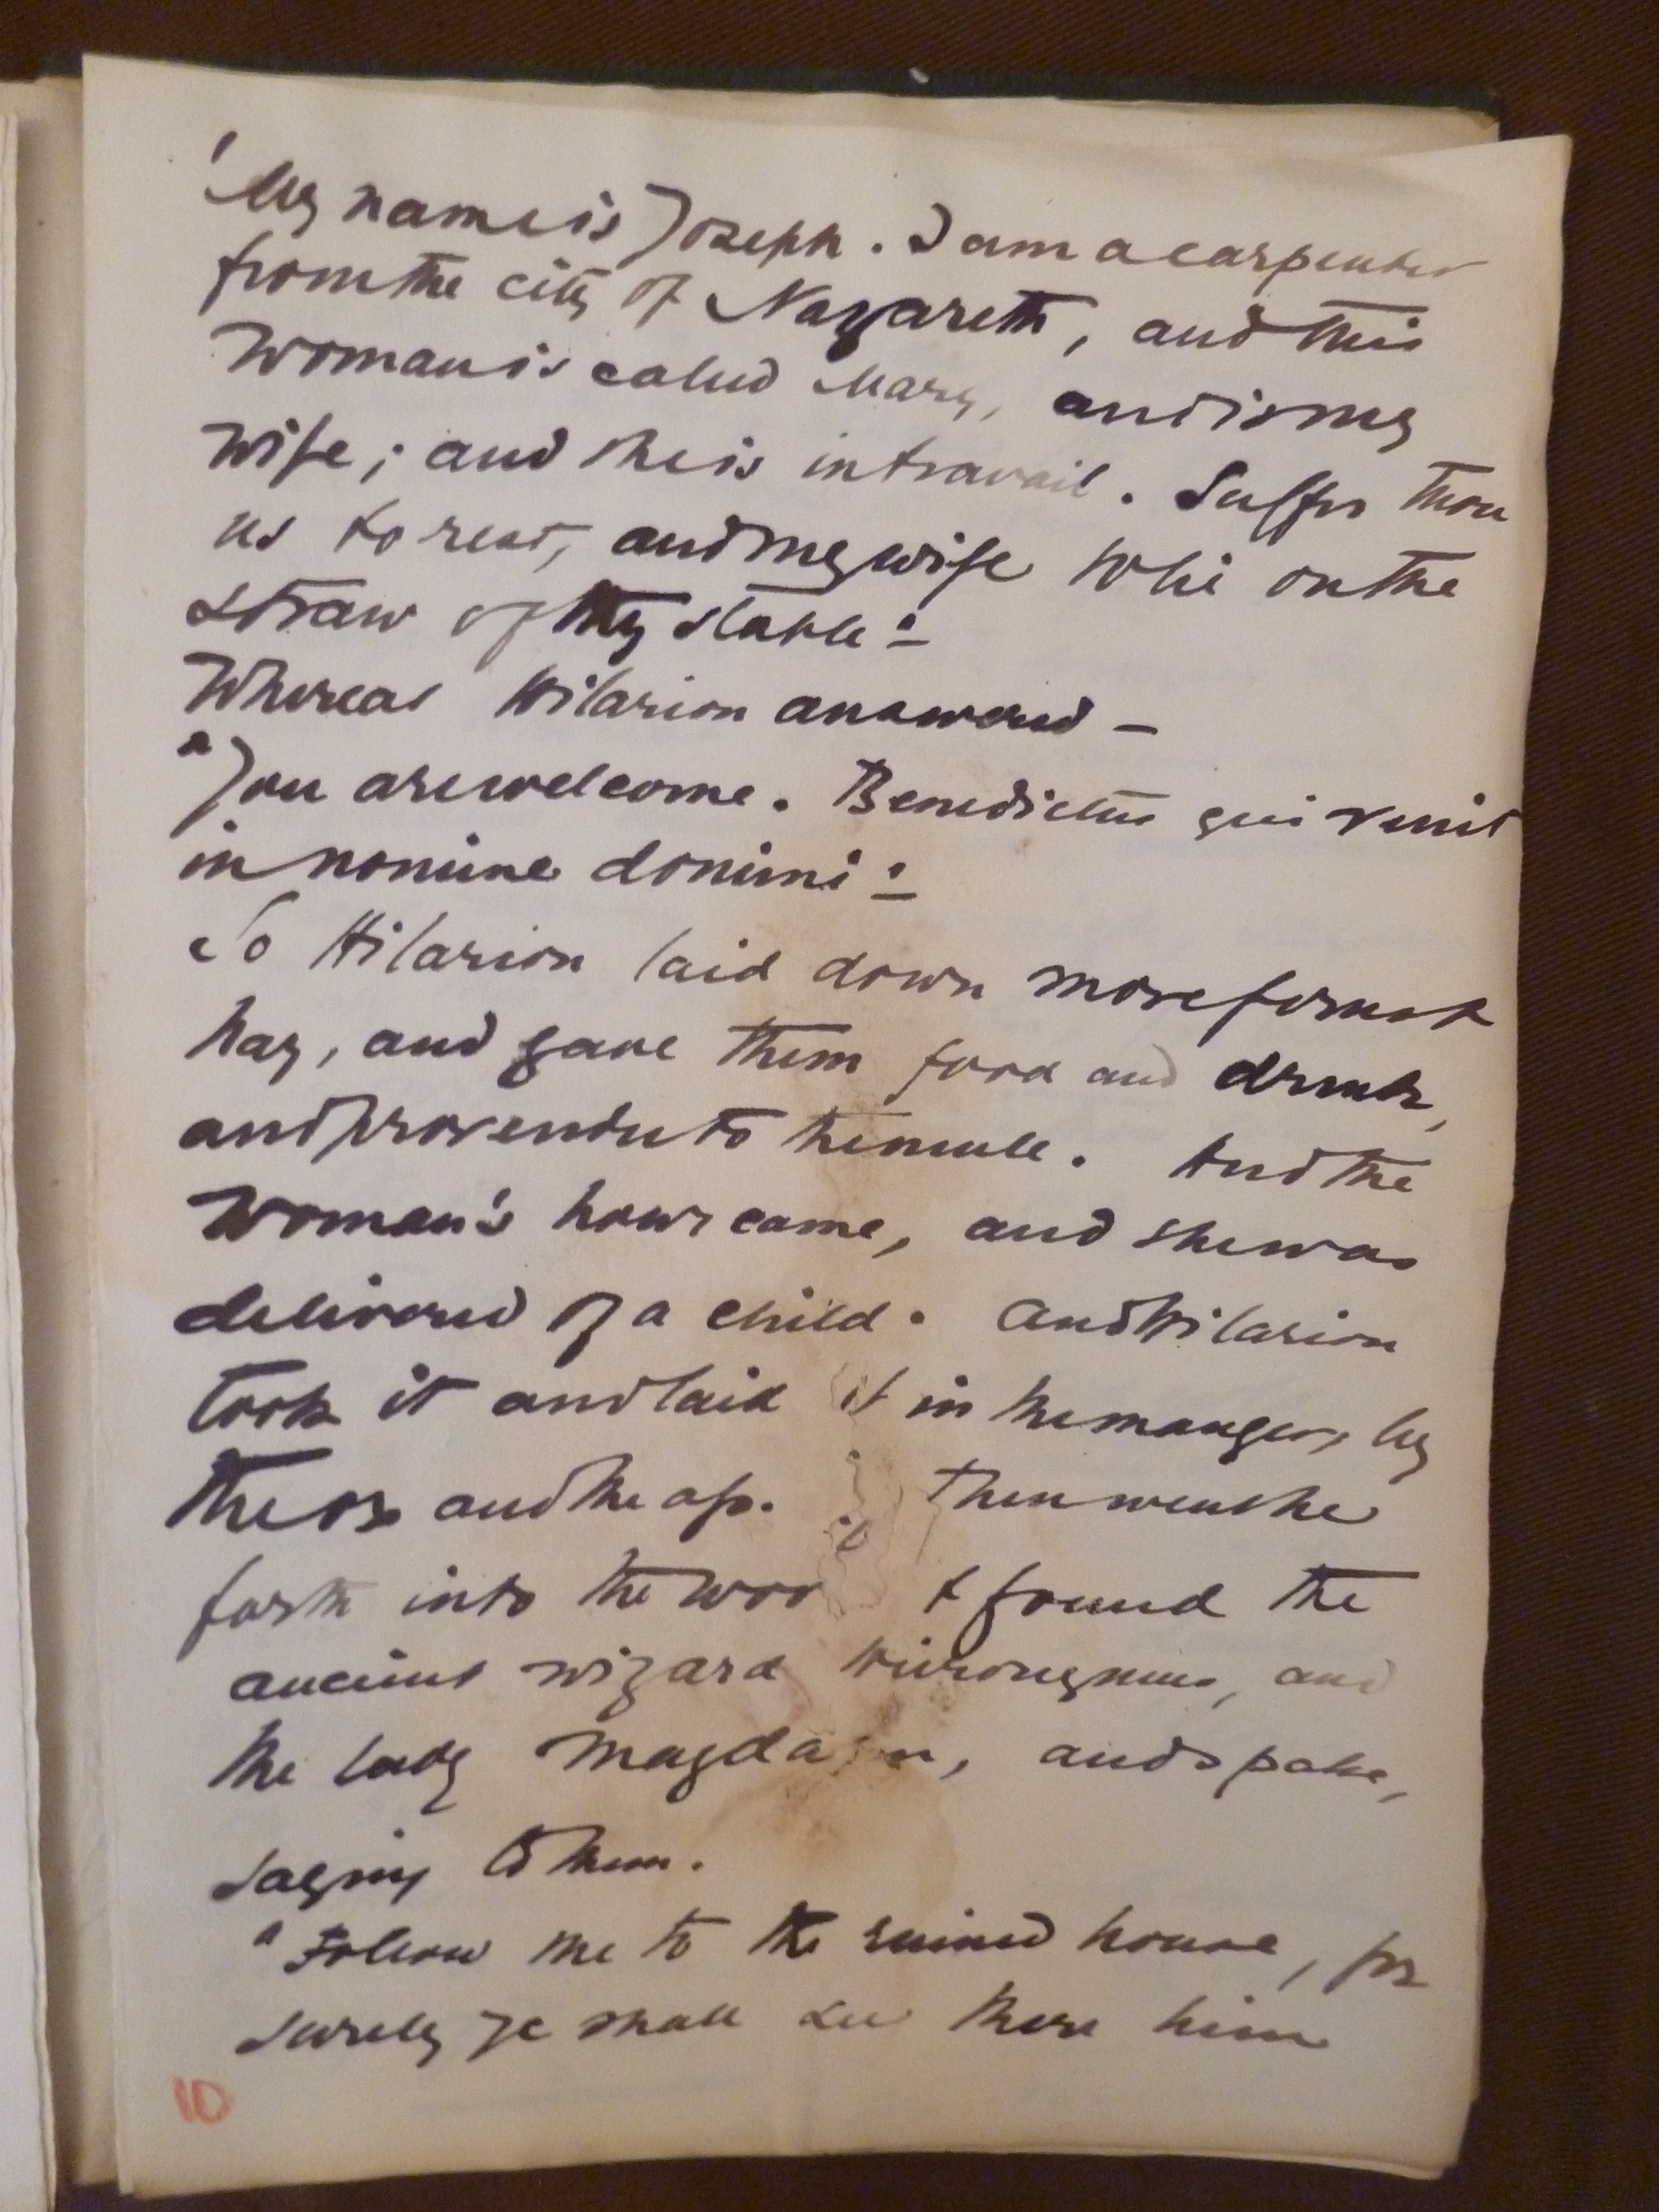 'My name is Joseph. I am a carpenter
from the city of Nazareth, and this
Woman is called Mary, and is my
wife; and she is in travail. Suffer thou
us to rest, and my wife to lie on the
straw of thy stable:-
Whereat Hilarion answered -
"You are welcome. Benedictus qui venit
in nomine domini:-
So Hilarion laid down more forest
hay, and gave them food and drink,
and provender to the mule. And the
Woman's hour came, and she was
delivered of a child. And Hilarion
took it and laid it in the manger, by
the ox and the ass. Then went he
forth into the woo & found the
ancient wizard Hieronymus, and
the lady Magda n, and spake,
saying to them.
"Follow me to the ruined house, for
surely ye shall see there him
10